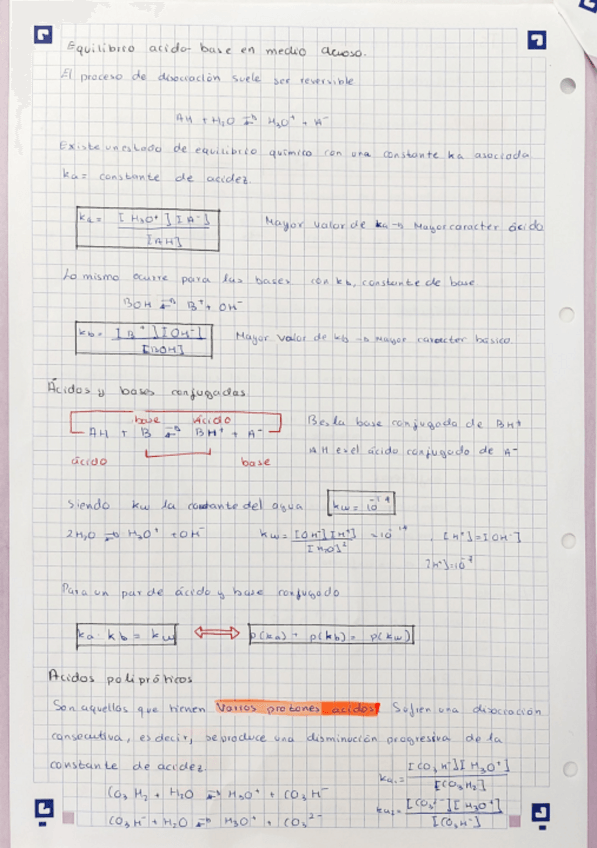 Equilibrio acido-base en medio acuoso.
El proceso de disociación suele ser reversible
AH + H₂O ⇌ H₃O⁺ + A⁻
Existe un estado de equilibrio químico con una constante ka asociada
ka = constante de acidez.
ka = [H₃O⁺][A⁻] / [AH]   Mayor valor de ka → Mayor caracter ácido
Lo mismo ocurre para las bases con kb, constante de base.
BOH ⇌ B⁺ + OH⁻
kb = [B⁺][OH⁻] / [BOH]   Mayor valor de kb → Mayor caracter básico.
Ácidos y bases conjugadas
base ácido
AH + B ⇌ BH⁺ + A⁻   B es la base conjugada de BH⁺
ácido base   AH es el ácido conjugado de A⁻
Siendo kw la constante del agua   kw = 10⁻¹⁴
2H₂O ⇌ H₃O⁺ + OH⁻   kw = [OH⁻][H⁺] / [H₂O]² = 10⁻¹⁴ , [H⁺] = [OH⁻]
[H⁺] = 10⁻⁷
Para un par de ácido y base conjugado
ka · kb = kw ⟺ p(ka) + p(kb) = p(kw)
Acidos polipróticos
Son aquellos que tienen varios protones acidos. Sufren una disociación
consecutiva, es decir, se produce una disminución progresiva de la
constante de acidez.   ka₁ = [CO₃H⁻][H₃O⁺] / [CO₃H₂]
CO₃H₂ + H₂O ⇌ H₃O⁺ + CO₃H⁻
CO₃H⁻ + H₂O ⇌ H₃O⁺ + CO₃²⁻   ka₂ = [CO₃²⁻][H₃O⁺] / [CO₃H⁻]